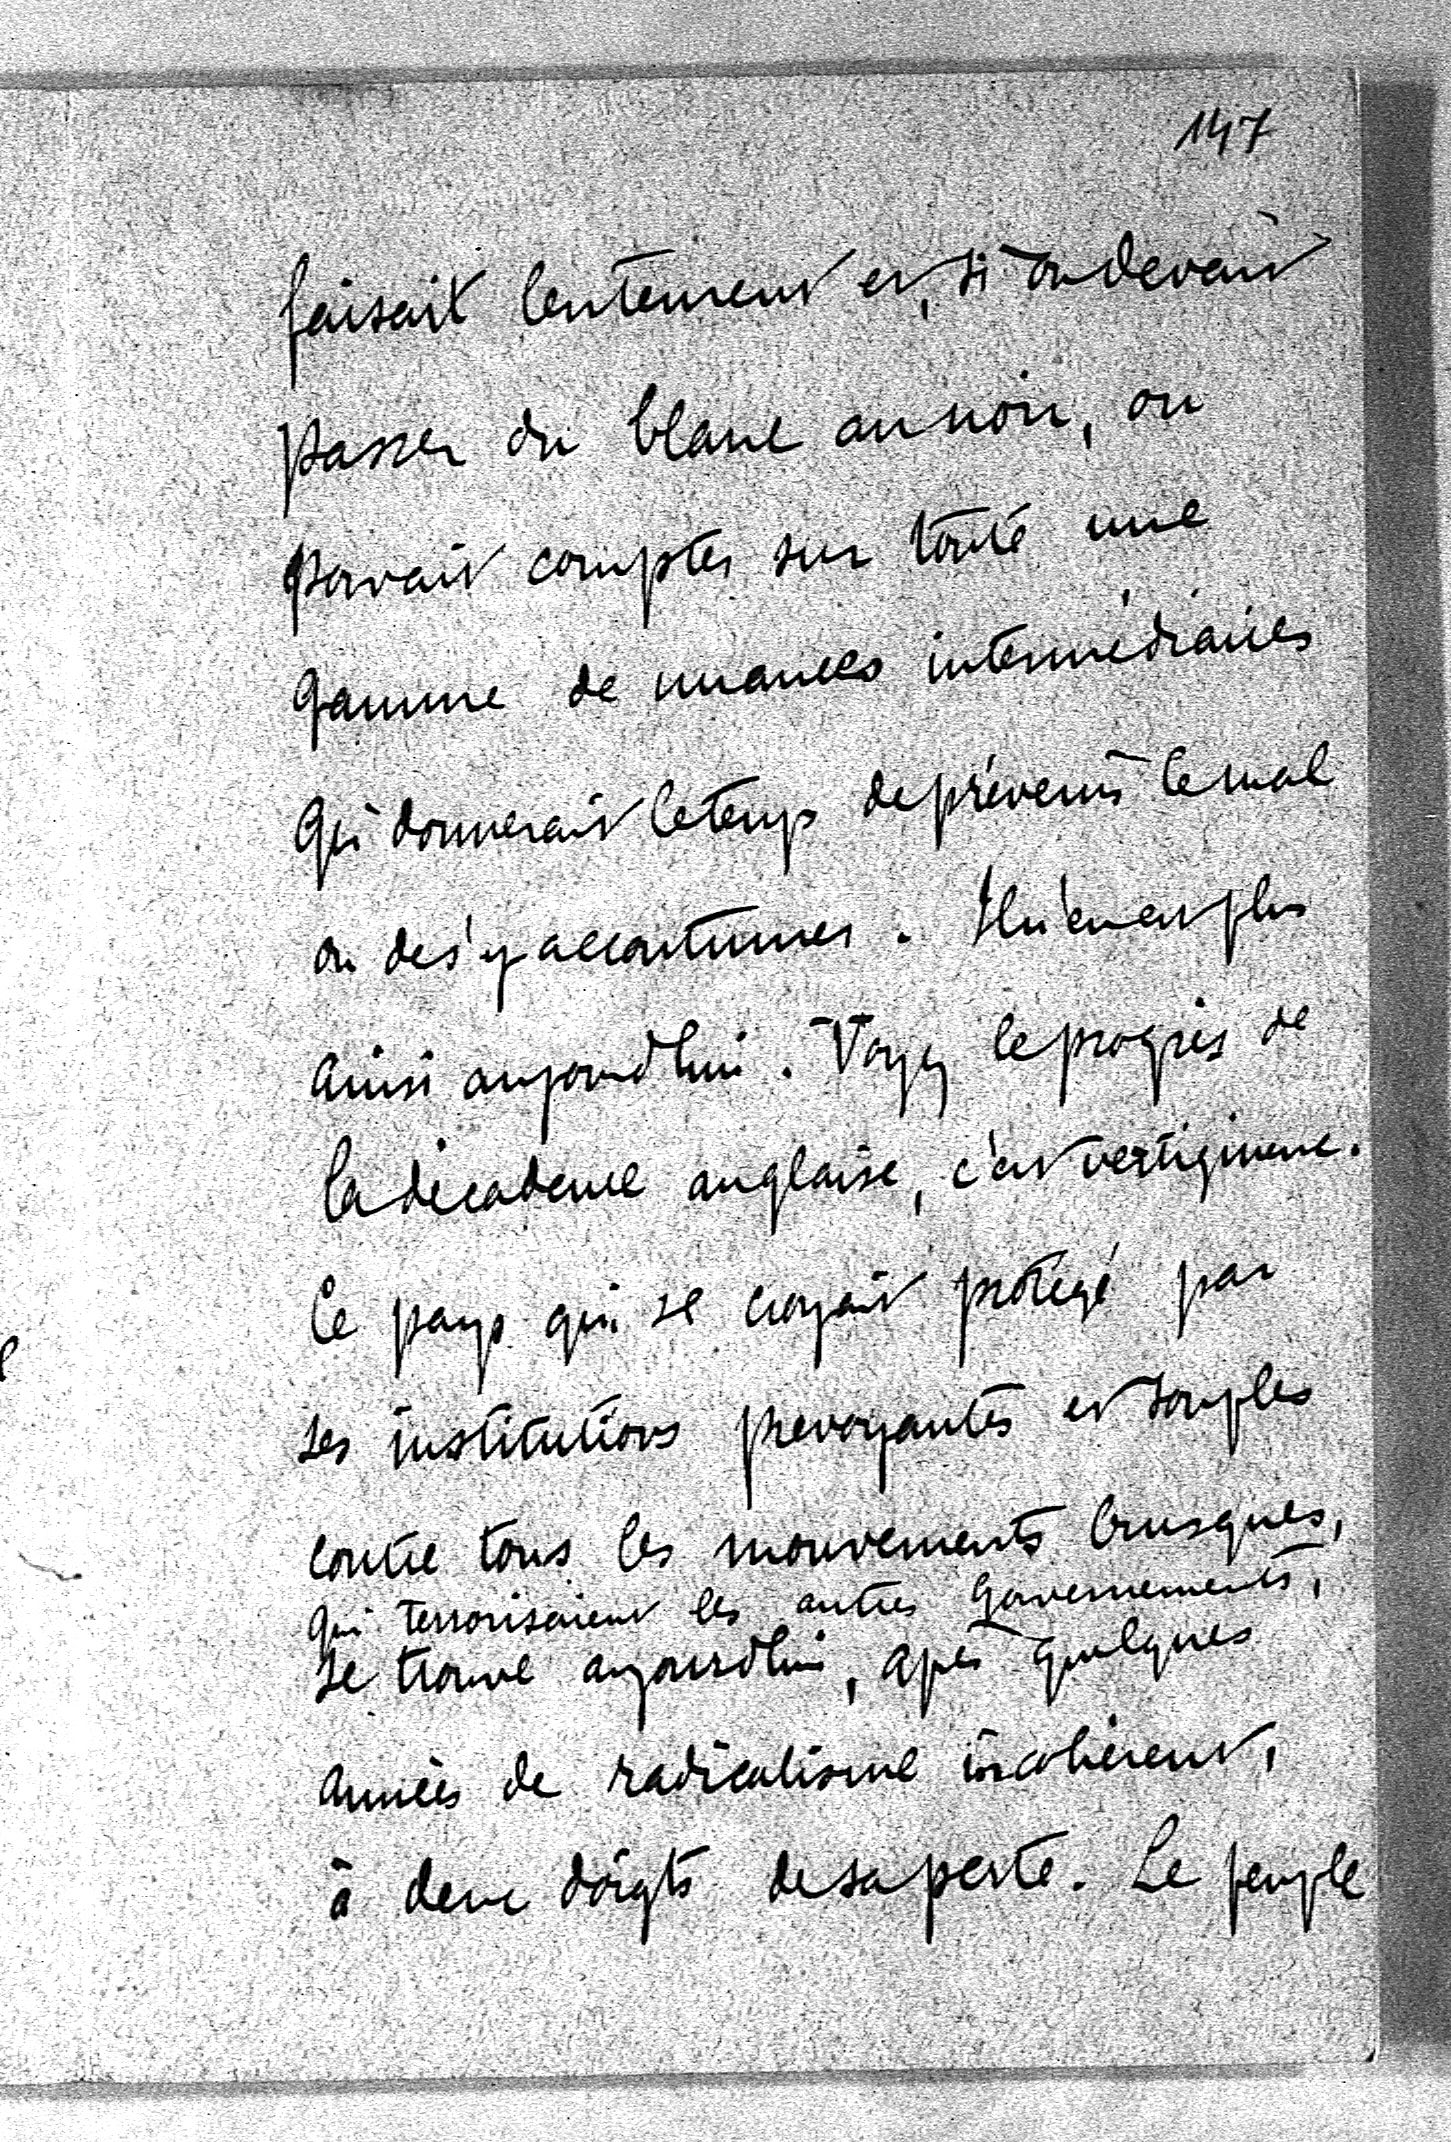 147
faisait lentement et, si on devait
passer du blanc au noir, on
pouvait compter sur toute une
gamme de nuances intermédiaires
qui donnerait le temps de prévenir le mal
ou de s'y accoutumer. Il n'en est plus
ainsi aujourd'hui. Voyez le progrès de
la décadence anglaise, c'est vertigineux.
Ce pays qui se croyait protégé par
ses institutions prévoyantes et souples
contre tous les mouvements brusques,
qui terrorisaient les autres gouvernements,
se trouve aujourd'hui, après quelques
années de radicalisme incohérent,
à deux doigts de sa perte. Le peuple